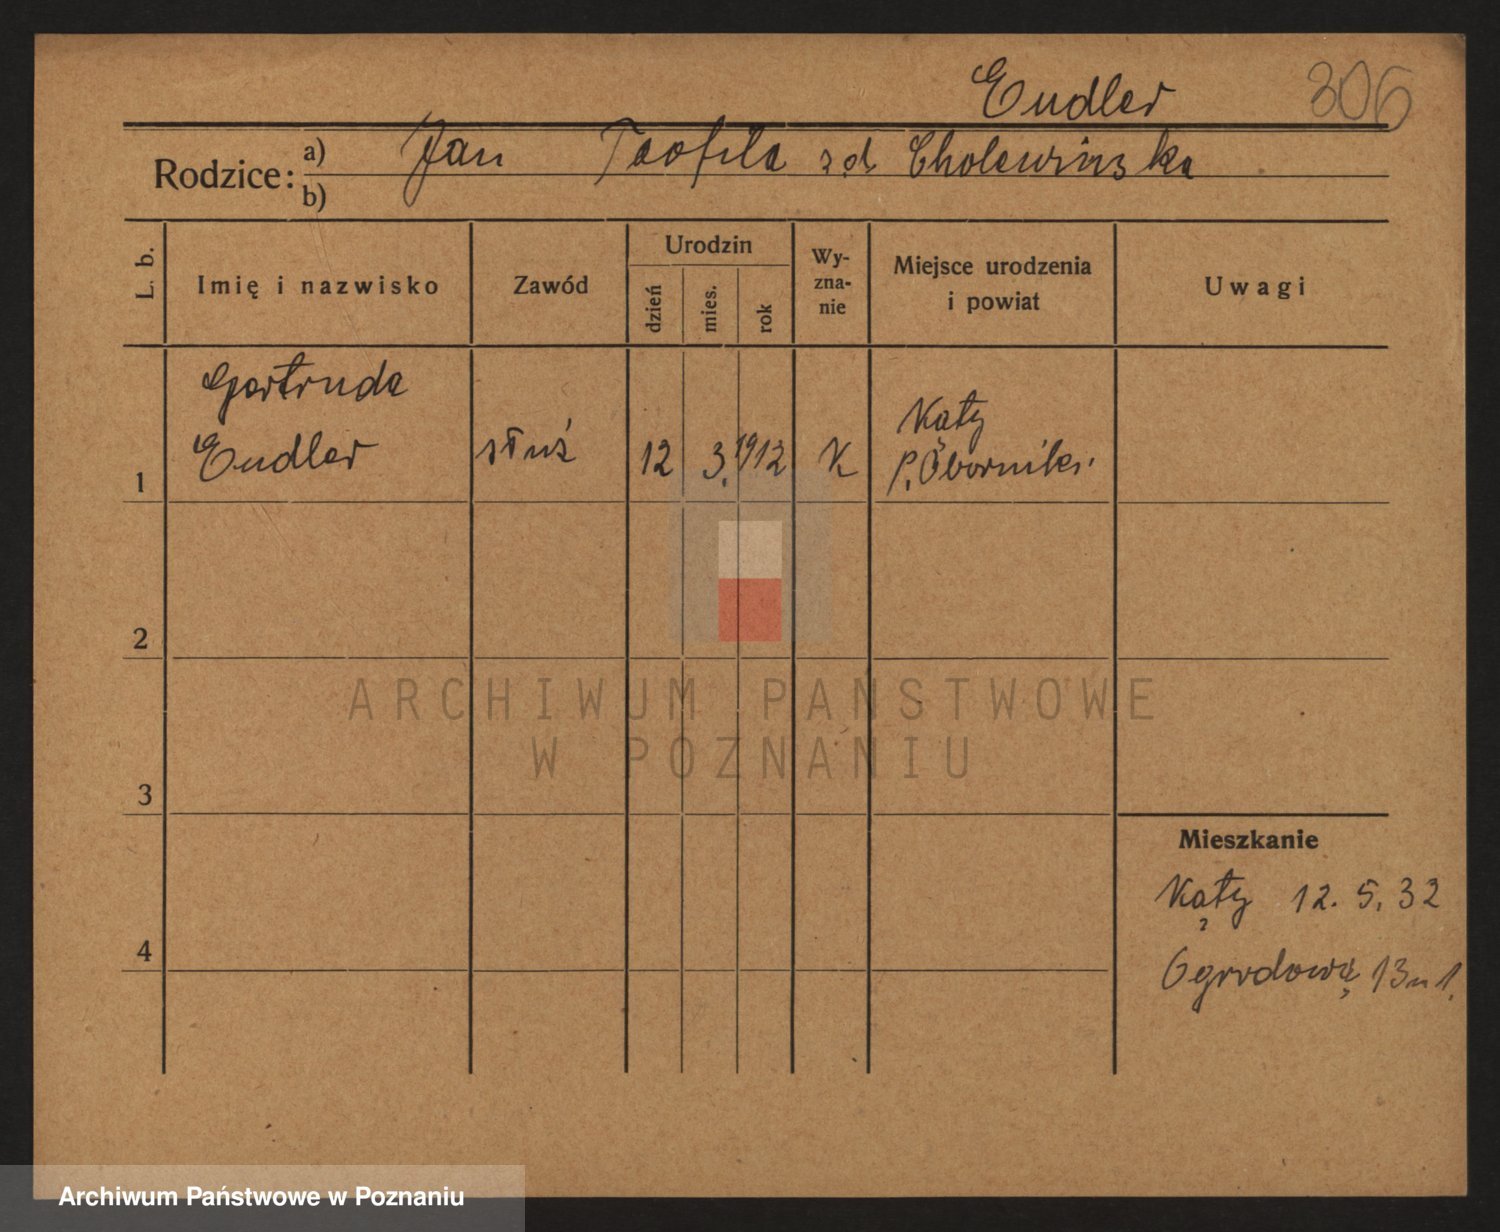 Endler 306
Rodzice: a) Jan Teofila z d. Cholewinska
b)
L. b. Imię i nazwisko Zawód Urodzin dzień mies. rok Wy-zna-nie Miejsce urodzenia i powiat Uwagi
Gertruda
Endler służ 12 3. 1912 K Kąty
1 P. Obornik.
2
ARCHIWUM PAŃSTWOWE
W POZNANIU
3
Mieszkanie
Kąty 12. 5. 32
4
Ogrodowa 13 m 1.
Archiwum Państwowe w Poznaniu